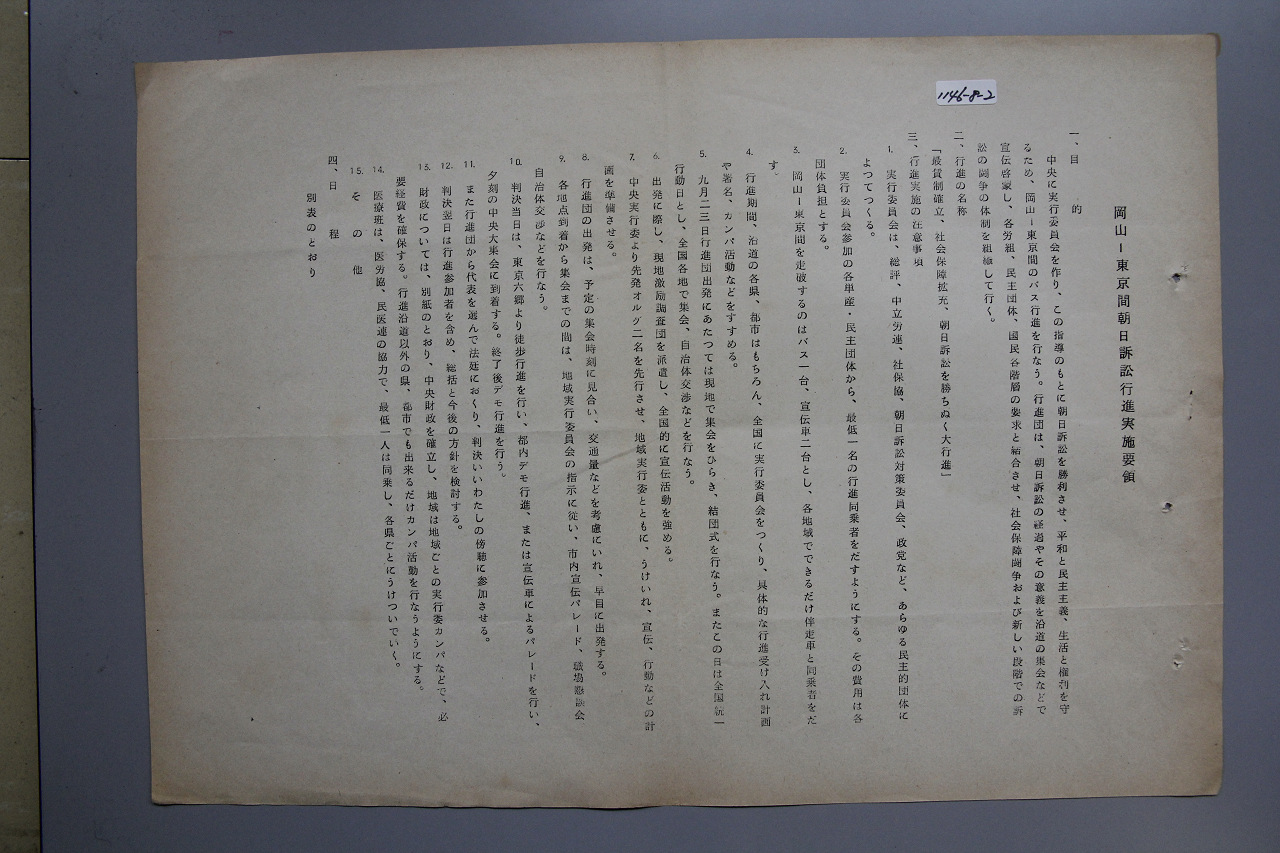 1146-8-2
岡山ー東京間朝日訴訟行進実施要領
一、目的
中央に実行委員会を作り、この指導のもとに朝日訴訟を勝利させ、平和と民主主義、生活と権利を守
るため、岡山ー東京間のバス行進を行なう。行進団は、朝日訴訟の経過やその意義を沿道の集会などで
宣伝啓蒙し、各労組、民主団体、国民各階層の要求と結合させ、社会保障闘争および新しい段階での訴
訟の闘争の体制を組織して行く。
二、行進の名称
「最賃制確立、社会保障拡充、朝日訴訟を勝ちぬく大行進」
三、行進実施の注意事項
1. 実行委員会は、総評、中立労連、社保協、朝日訴訟対策委員会、政党など、あらゆる民主的団体に
よつてつくる。
2. 実行委員会参加の各単産・民主団体から、最低一名の行進同乗者をだすようにする。その費用は各
団体負担とする。
3. 岡山ー東京間を走破するのはバス一台、宣伝車二台とし、各地域でできるだけ伴走車と同乗者をだ
す。
4. 行進期間、沿道の各県、都市はもちろん、全国に実行委員会をつくり、具体的な行進受け入れ計画
や署名、カンパ活動などをすすめる。
5. 九月二三日行進団出発にあたつては現地で集会をひらき、結団式を行なう。またこの日は全国統一
行動日とし、全国各地で集会、自治体交渉などを行なう。
6. 出発に際し、現地激励調査団を派遣し、全国的に宣伝活動を強める。
7. 中央実行委より先発オルグ二名を先行させ、地域実行委とともに、うけいれ、宣伝、行動などの計
画を準備させる。
8. 行進団の出発は、予定の集会時刻に見合い、交通量などを考慮にいれ、早目に出発する。
9. 各地点到着から集会までの間は、地域実行委員会の指示に従い、市内宣伝パレード、職場懇談会
自治体交渉などを行なう。
10. 判決当日は、東京六郷より徒歩行進を行い、都内デモ行進、または宣伝車によるパレードを行い、
夕刻の中央大集会に到着する。終了後デモ行進を行う。
11. また行進団から代表を選んで法廷におくり、判決いいわたしの傍聴に参加させる。
12. 判決翌日は行進参加者を含め、総括と今後の方針を検討する。
13. 財政については、別紙のとおり、中央財政を確立し、地域は地域ごとの実行委カンパなどで、必
要経費を確保する。行進沿道以外の県、都市でも出来るだけカンパ活動を行なうようにする。
14. 医療班は、医労協、民医連の協力で、最低一人は同乗し、各県ごとにうけついでいく。
15. その他
四、日程
別表のとおり